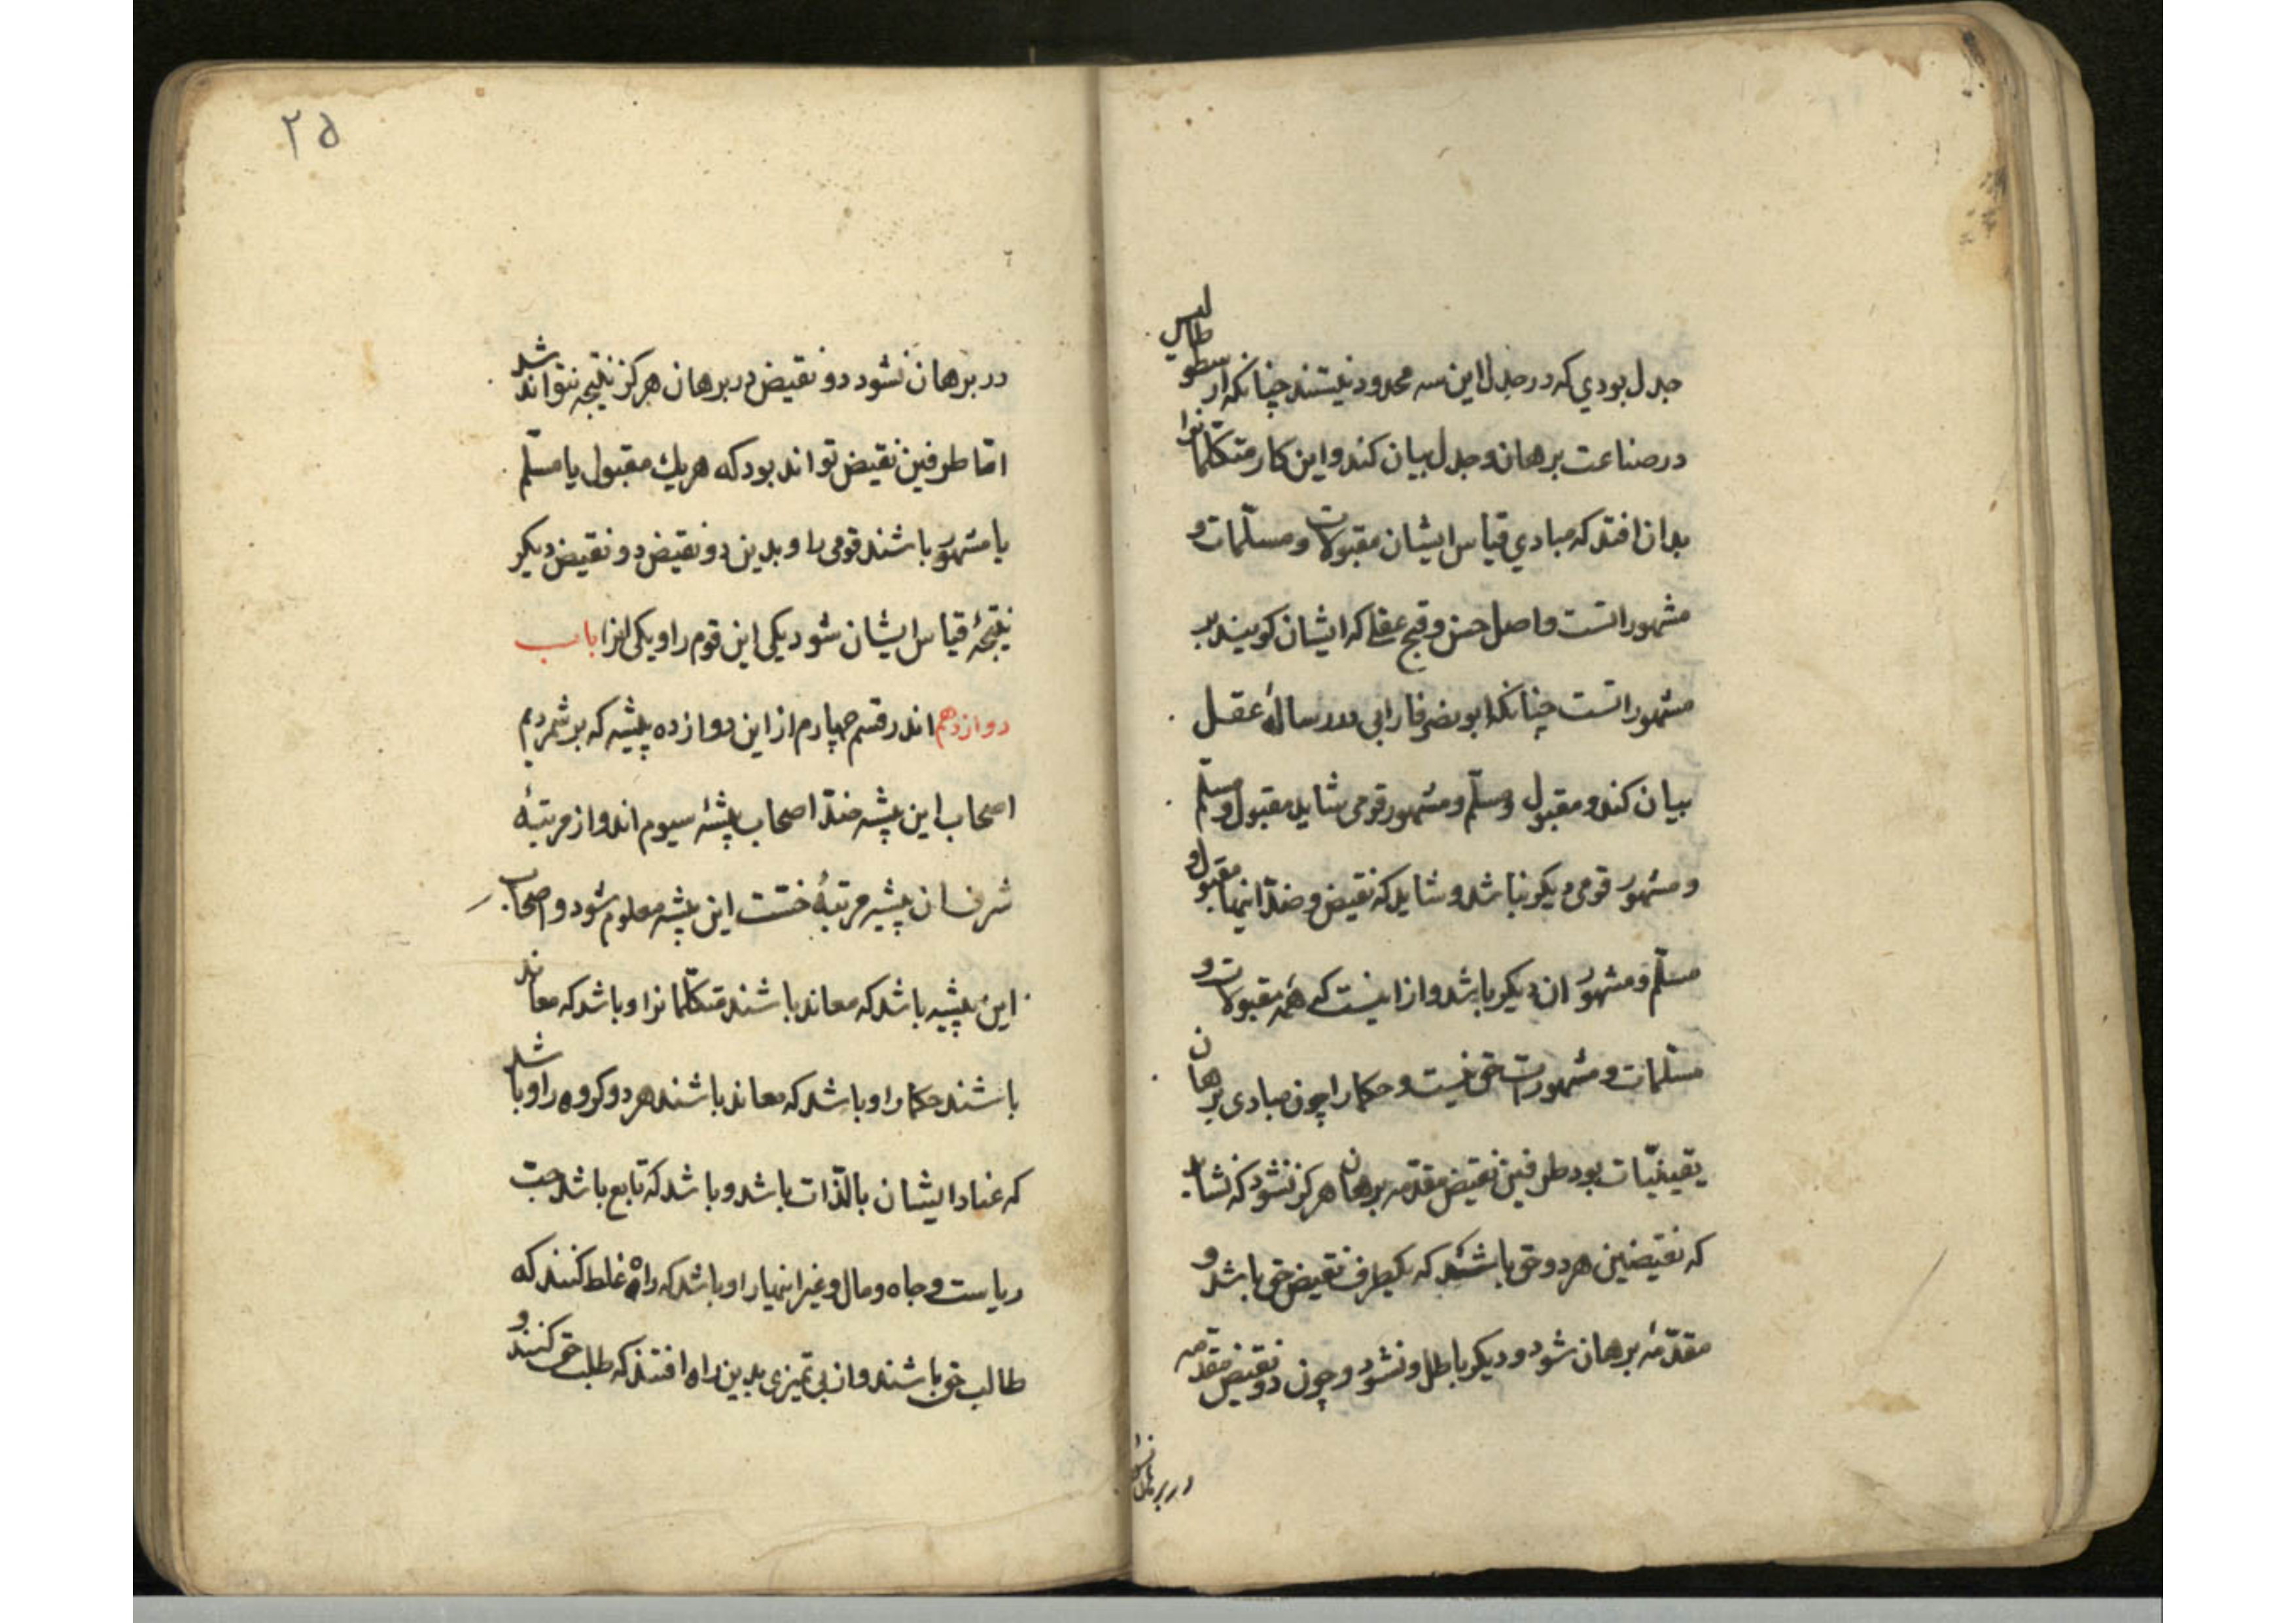 جدل بودي که در جدل این سه محدود نیستند چنانکه ارسطوطالیس
در صناعت برهان و جدل بیان کند و این کار متکلمانرا
بدان افتد که مبادي قیاس ایشان مقبولات و مسلّمات و
مشهوراتست و اصل حسن و قبح عقلی که ایشان کویند بر
مشهوراتست چنانکه ابونصر فارابی در رسالهٔ عقل
بیان کند و مقبول و مسلّم و مشهور قومی شاید مقبول و مسلّم
و مشهور قومی دیکر نباشد و شاید که نقیض و ضدّ اینها مقبول و
مسلّم و مشهور ان دیکر باشد و از اینست که همه مقبولات و
مسلمات و مشهورات حق نیست و حکما را چون مبادی برهان
یقینیّات بود طرفین نقیض مقدّمه برهان هرکز نشود که نشاید
که نقیضین هر دو حق باشند که یکطرف نقیض حق باشد و
مقدّمهٔ برهان شود و دیکر باطل و نشود و چون دو نقیض مقدمه
در برهان نشود
۲۵
در برهان نشود دو نقیض در برهان هرکز نتیجه نتواند شد
امّا طرفین نقیض تواند بود که هر یك مقبول یا مسلّم
یا مشهور باشند قومی را و بدین دو نقیض دو نقیض دیکر
نتیجهٔ قیاس ایشان شود یکی این قوم را و یکی انرا باب
دوازدهم اندر قسم چهارم از این دوازده پیشه که بر شمردیم
اصحاب این پیشه ضدّ اصحاب پیشهٔ سیوم اند و از مرتبهٔ
شرف ان پیشه مرتبهٔ خسّت این پیشه معلوم شود و اصحاب
این پیشه باشد که معاند باشند متکلّمانرا و باشد که معاند
باشند حکما را و باشد که معاند باشند هر دو کروه را و باشد
که عناد ایشان بالذّات باشد و باشد که تابع باشد حبّ
ریاست و جاه و مال و غیر اینها را و باشد که راه غلط کنند که
طالب حق باشند و از بی تمیزی بدین راه افتند که طلب حق کنند و